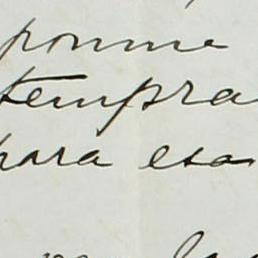 ponme
tempra
para esa